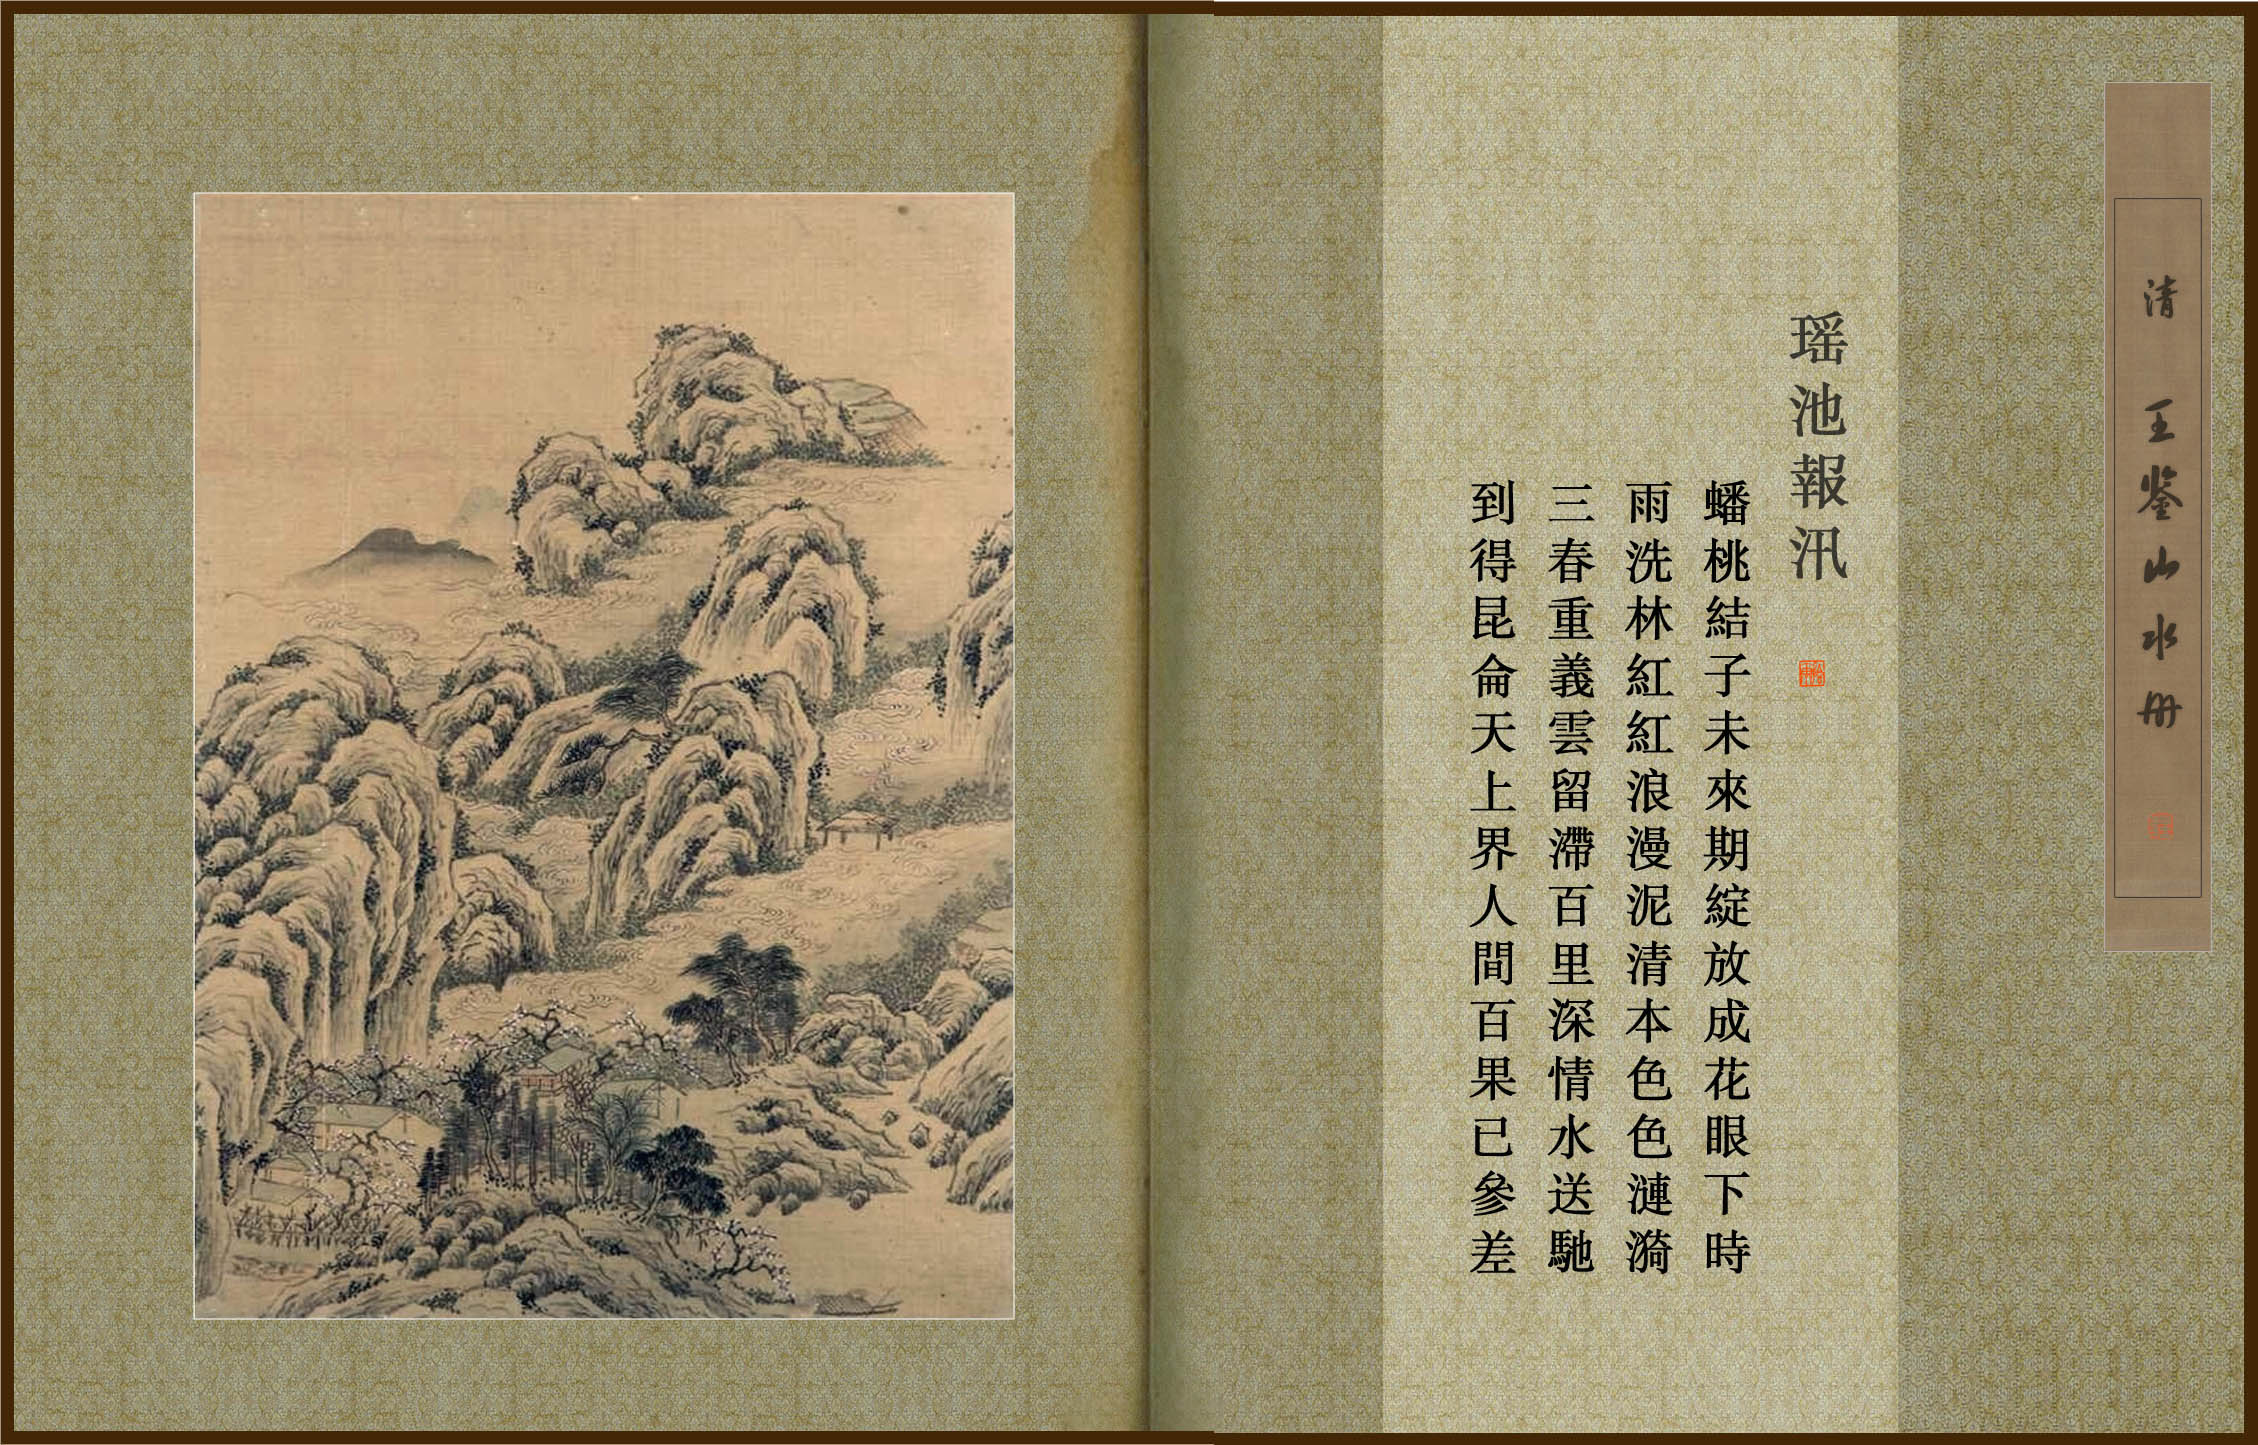 清 王鉴山水册
瑶池報汛
蟠桃結子未來期綻放成花眼下時
雨洗林紅紅浪漫泥清本色色漣漪
三春重義雲留滯百里深情水送馳
到得昆侖天上界人間百果已參差